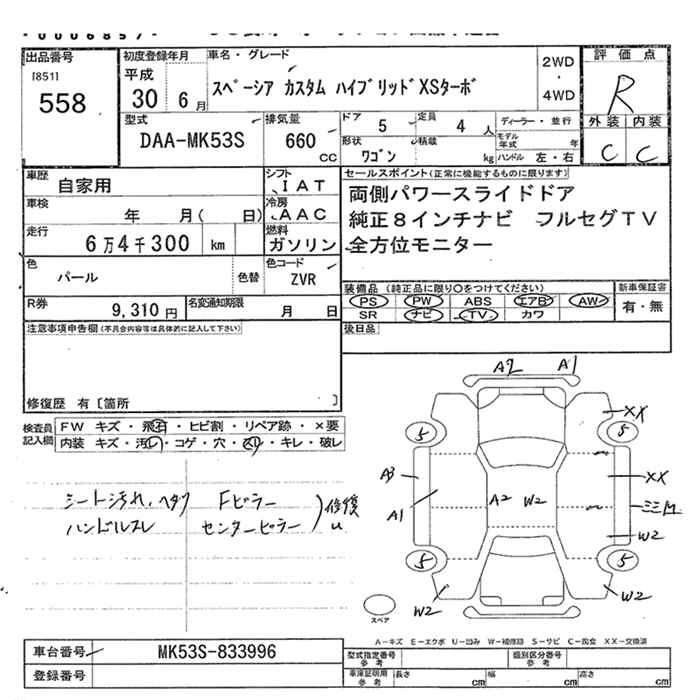 0006857
出品番号
[851]
558
初度登録年月
平成
30 6月
車名・グレード
スペーシア カスタム ハイブリッドXSターボ
2WD
・
4WD
評価点
R
外装 内装
C C
型式
DAA-MK53S
排気量
660 cc
ドア 5
定員 4 人
ディーラー・並行
形状 ワゴン
積載 kg
モデル年式 年
ハンドル 左・右
車歴 自家用
シフト IAT
車検 年 月( 日)
冷房 AAC
走行 6万4千300 km
燃料 ガソリン
色 パール
色替
色コード ZVR
R券 9,310円
名変通知期限 月 日
セールスポイント(正常に機能するものに限ります)
両側パワースライドドア
純正8インチナビ フルセグTV
全方位モニター
装備品 (純正品に限り○をつけてください)
新車保証書
PS PW ABS エアB AW
SR ナビ TV カワ
有・無
後日品
注意事項申告欄(不具合内容等は具体的に記入して下さい)
修復歴 有〔箇所 〕
検査員記入欄
FW キズ・飛石・ヒビ割・リペア跡・×要
内装 キズ・汚レ・コゲ・穴・スリ・キレ・破レ
シート汚れ、ヘタリ Fピラー
ハンドルスレ センターピラー
修復
A2 A1
XX
5 5
A3
XX
A1
A2 W2
W2
5 5
W2 W2
スペア
A-キズ E-エクボ U-凹み W-補修跡 S-サビ C-腐食 XX-交換済
車台番号 MK53S-833996
登録番号
型式指定番号 参考
類別区分番号 参考
車庫証明用 参考
長さ cm 幅 cm 高さ cm